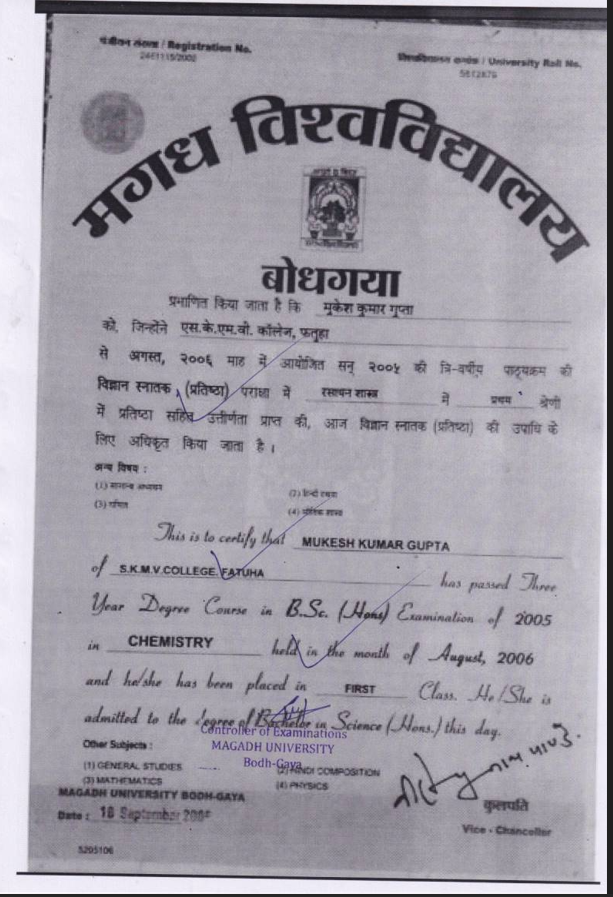 पंजीयन संख्या / Registration No.
विश्वविद्यालय क्रमांक / University Roll No.
मगध विश्वविद्यालय
बोधगया
प्रमाणित किया जाता है कि मुकेश कुमार गुप्ता
को, जिन्होंने एस.के.एम.वी. कॉलेज, फतुहा
से अगस्त, २००६ माह में आयोजित सन् २००५ की त्रि-वर्षीय पाठ्यक्रम की
विज्ञान स्नातक (प्रतिष्ठा) परीक्षा में रसायन शास्त्र में प्रथम श्रेणी
में प्रतिष्ठा सहित उत्तीर्णता प्राप्त की, आज विज्ञान स्नातक (प्रतिष्ठा) की उपाधि के
लिए अधिकृत किया जाता है ।
अन्य विषय :
(1) सामान्य अध्ययन (2) हिन्दी रचना
(3) गणित (4) भौतिक शास्त्र
This is to certify that MUKESH KUMAR GUPTA
of S.K.M.V.COLLEGE. FATUHA has passed Three
Year Degree Course in B.Sc. (Hons) Examination of 2005
in CHEMISTRY held in the month of August, 2006
and he/she has been placed in FIRST Class. He/She is
admitted to the degree of Bachelor in Science (Hons.) this day.
Controller of Examinations
MAGADH UNIVERSITY
Bodh-Gaya
Other Subjects :
(1) GENERAL STUDIES (2) HINDI COMPOSITION
(3) MATHEMATICS (4) PHYSICS
MAGADH UNIVERSITY BODH-GAYA
कुलपति
Date : 18 September
Vice - Chancellor
5295106